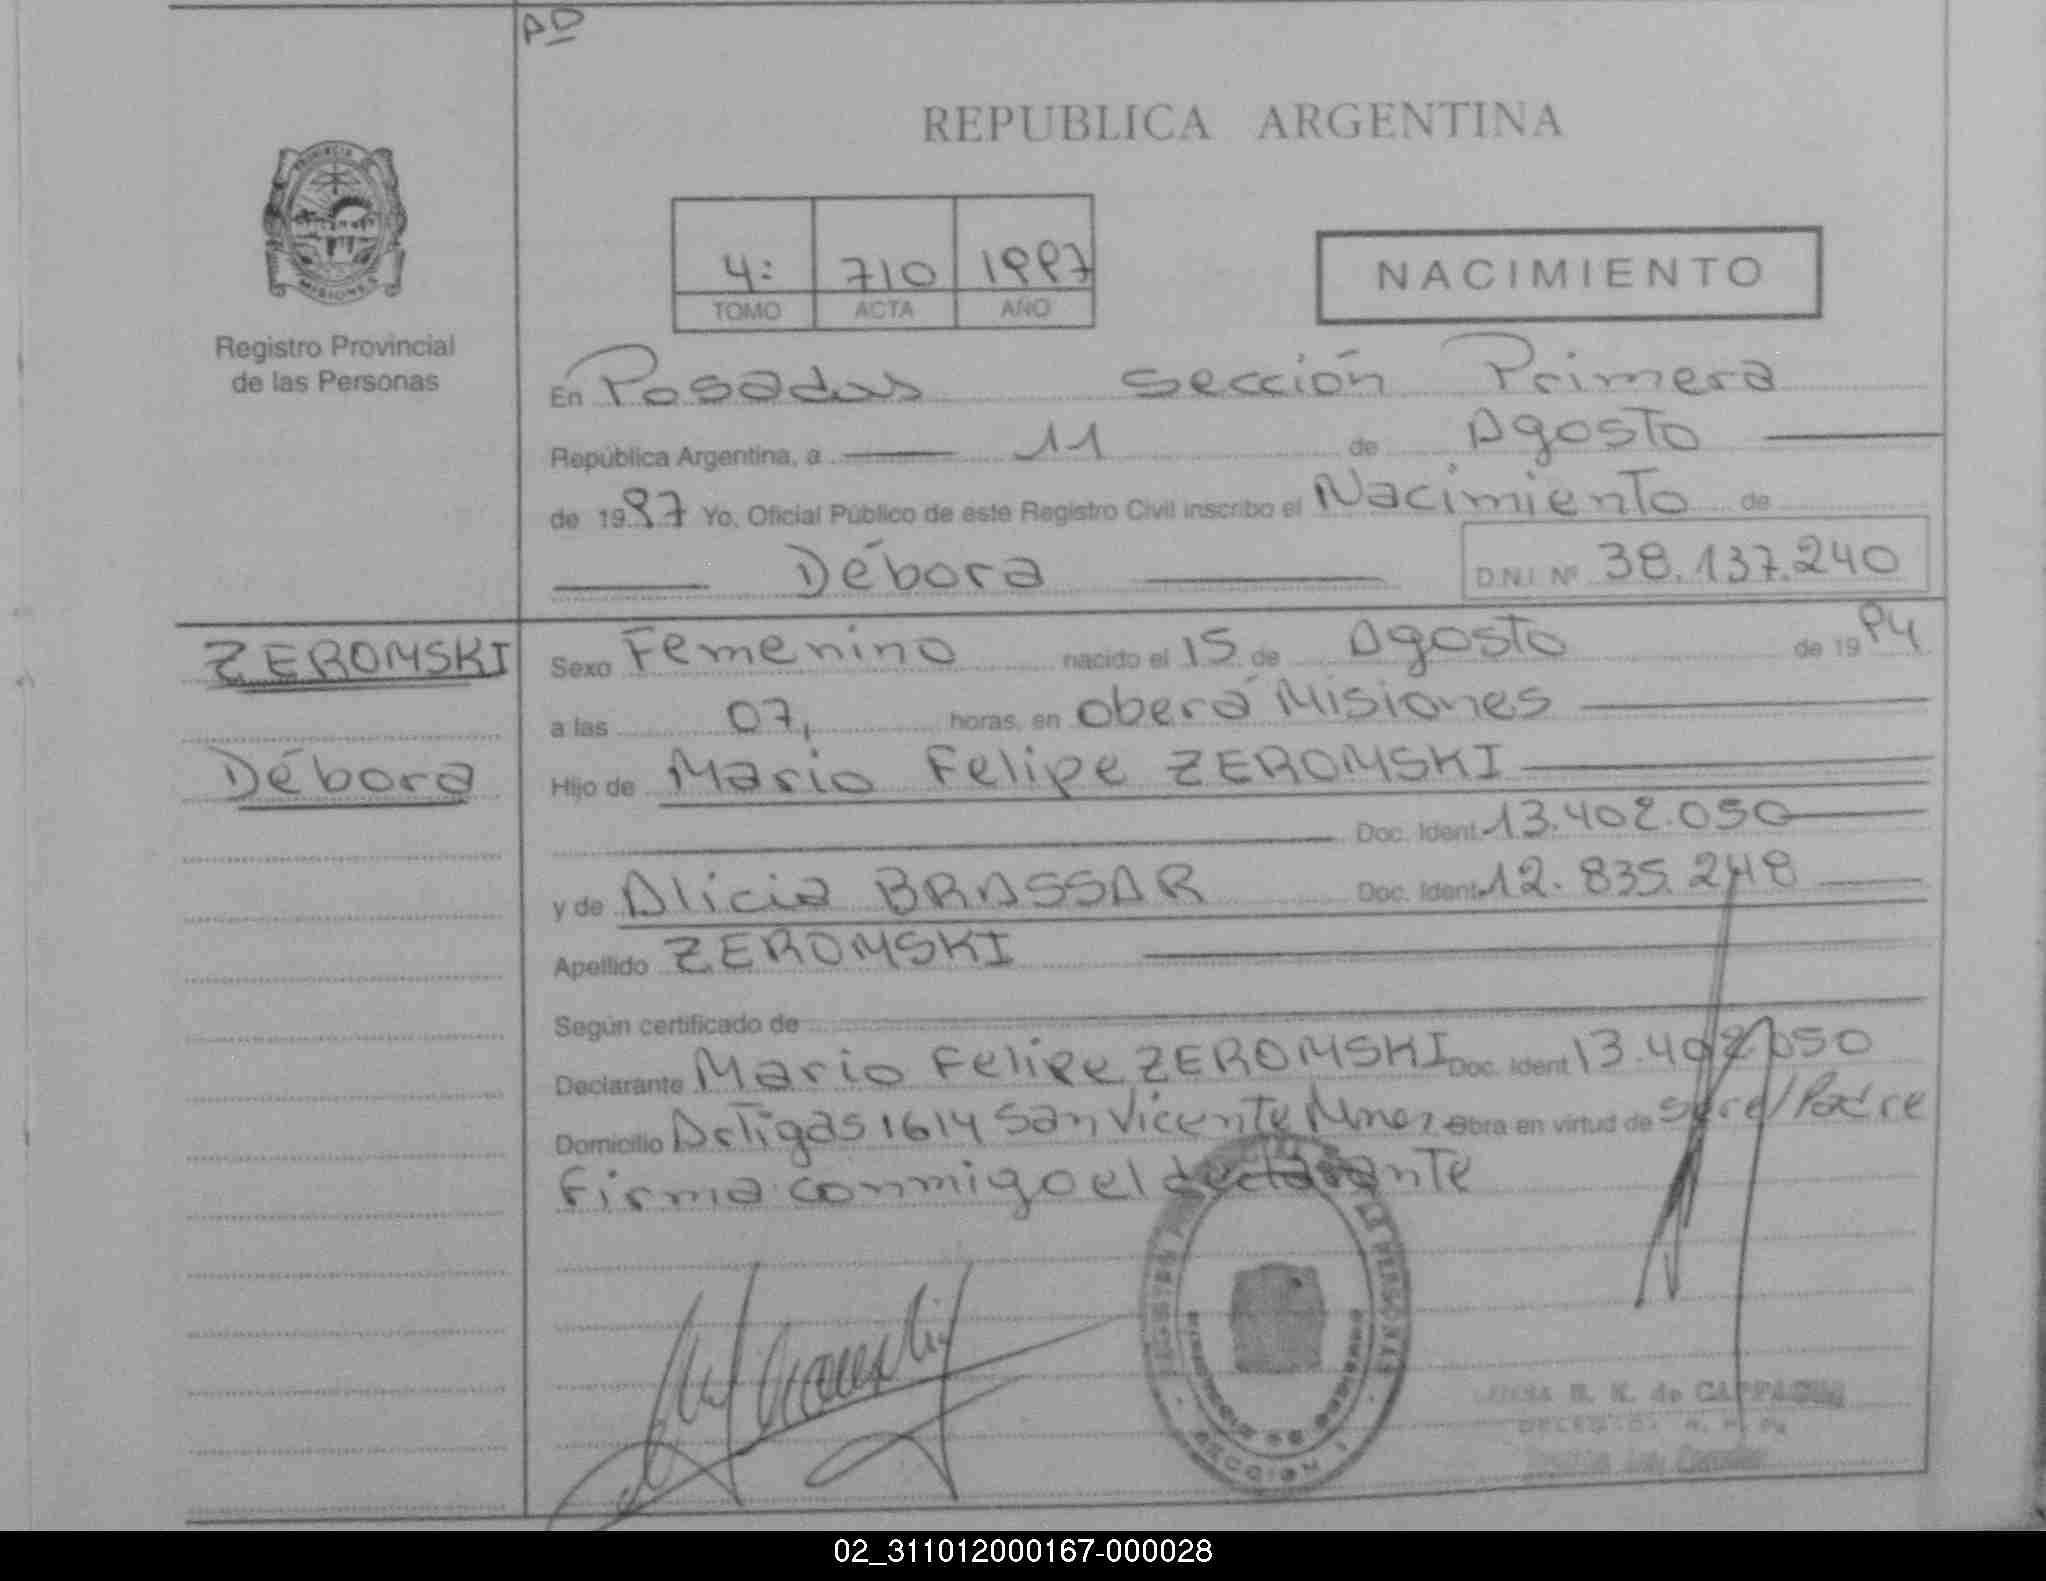 AD
REPUBLICA ARGENTINA
PROVINCIA DE
MISIONES
Registro Provincial
de las Personas
4: 710 1997
TOMO ACTA AÑO
NACIMIENTO
En Posadas sección Primera
República Argentina, a 11 de Agosto
de 1997 Yo, Oficial Público de este Registro Civil inscribo el Nacimiento de
Débora D.N.I. Nº 38.137.240
ZEROMSKI
Débora
Sexo Femenino nacido el 15 de Agosto de 1994
a las 07, horas, en Oberá Misiones
Hijo de Mario Felipe ZEROMSKI
Doc. Ident. 13.402.050
y de Alicia BRASSAR Doc. Ident. 12.835.248
Apellido ZEROMSKI
Según certificado de
Declarante Mario Felipe ZEROMSKI Doc. Ident 13.402.050
Domicilio Artigas 1614 San Vicente Mnes Obra en virtud de ser el Padre
Firma conmigo el declarante
LAS PERSONAS
SECCION 1
de
02_311012000167-000028